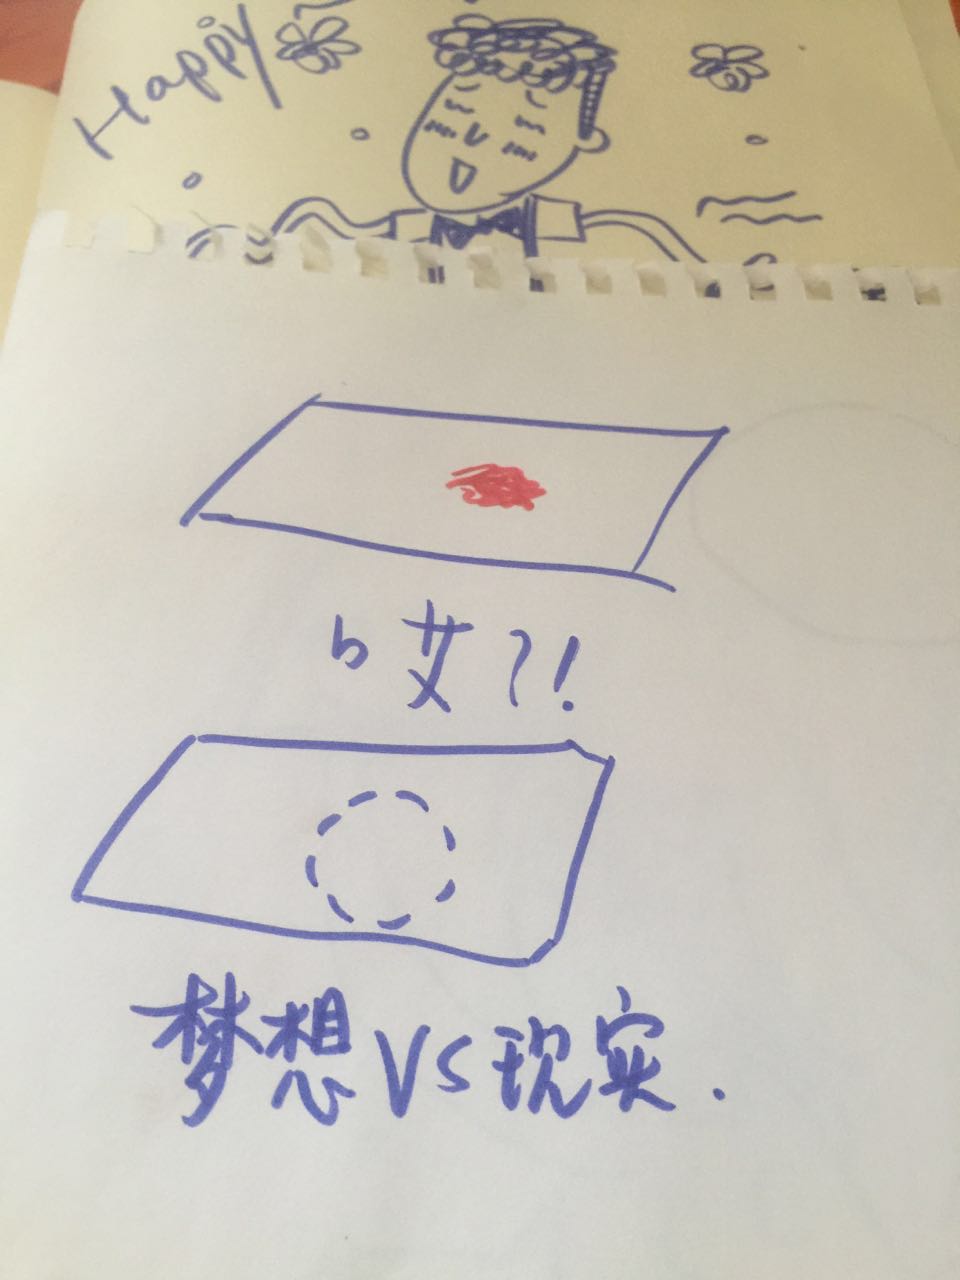 Happy
b艾?!
梦想VS现实.